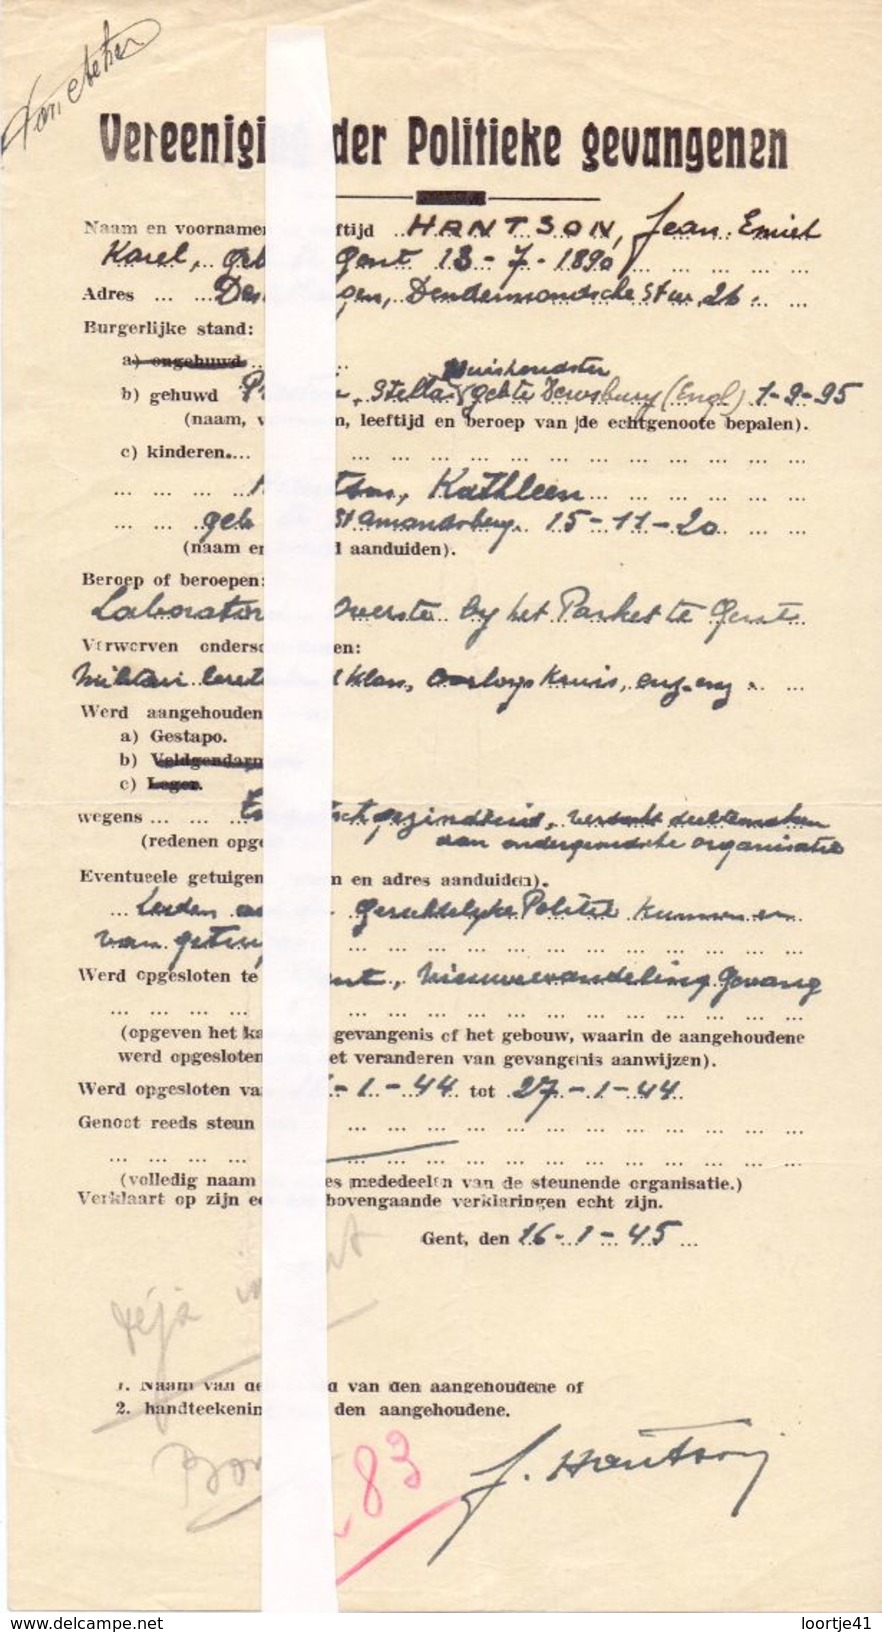 Vereenigi der Politieke gevangenen
Naam en voornamen ftijd HANTSON, Jean Emiel
Karel, geb Gent 13-7-1890
Adres Des gen, Dendermondsche Str, 26.
Burgerlijke stand:
a) ongehuwd
huishoudster
b) gehuwd Stella geb te Dewsbury (Engl) 1-9-95
(naam, v m, leeftijd en beroep van de echtgenoote bepalen).
c) kinderen.
Kathleen
geb St Amandsberg. 15-11-20
(naam en d aanduiden).
Beroep of beroepen:
Laborator Overste by het Parket te Gent
Verwerven ondersc en:
Militair klas, Oorlogskruis, enz.enz
Werd aangehouden
a) Gestapo.
b) Veldgendarm
c) Leger.
wegens sch gezindheid, verdacht deeltemaken
(redenen opge aan ondergrondsche organisatie
Eventueele getuigen m en adres aanduiden).
Leden Gerechtelijke Politie kunnen er
van getuig
Werd opgesloten te ent, Nieuwewandeling Gevang
(opgeven het ka gevangenis of het gebouw, waarin de aangehoudene
werd opgesloten et veranderen van gevangenis aanwijzen).
Werd opgesloten va -1-44 tot 27-1-44
Genoot reeds steun
(volledig naam es mededeelen van de steunende organisatie.)
Verklaart op zijn ee bovengaande verklaringen echt zijn.
Gent, den 16-1-45
déjà
1. Naam van de d van den aangehoudene of
2. handteekenin den aangehoudene.
83
J. Hantson
© delcampe.net
loortje41